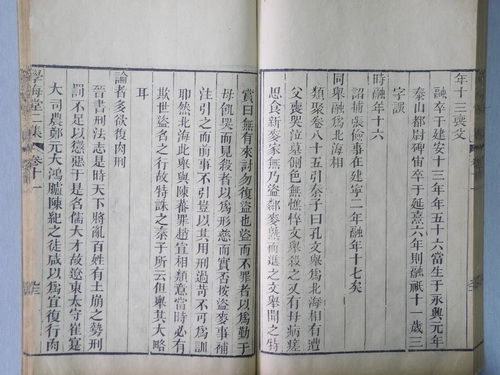 年十三喪父
融卒于建安十三年年五十六當生于永興元年
泰山都尉碑宙卒于延熹六年則融祇十一歲三
字誤
時融年十六
詔捕張儉事在建寧二年融年十七矣
同舉融爲北海相
類聚卷八十五引秦子曰孔文舉爲北海相有遭
父喪哭泣墓側色無憔悴文舉殺之又有母病瘥
思食新麥家無乃盜鄰麥熟而進之文舉聞之特
賞曰無有來討勿復盜也盜而不罪者以爲勤于
母飢哭而見殺者以爲形悲而實否按盜麥事補
注引之而前事不引豈以其用刑過苛不可爲訓
耶然北海此舉與陳蕃罪趙宣相類意當時必有
欺世盜名之行故特誅之秦子所云但舉其大略
耳
論者多欲復肉刑
晉書刑法志是時天下將亂百姓有土崩之勢刑
罰不足以懲惡于是名儒大才故遼東太守崔寔
大司農鄭元大鴻臚陳紀之徒咸以爲宜復行肉
學海堂二集 卷十一